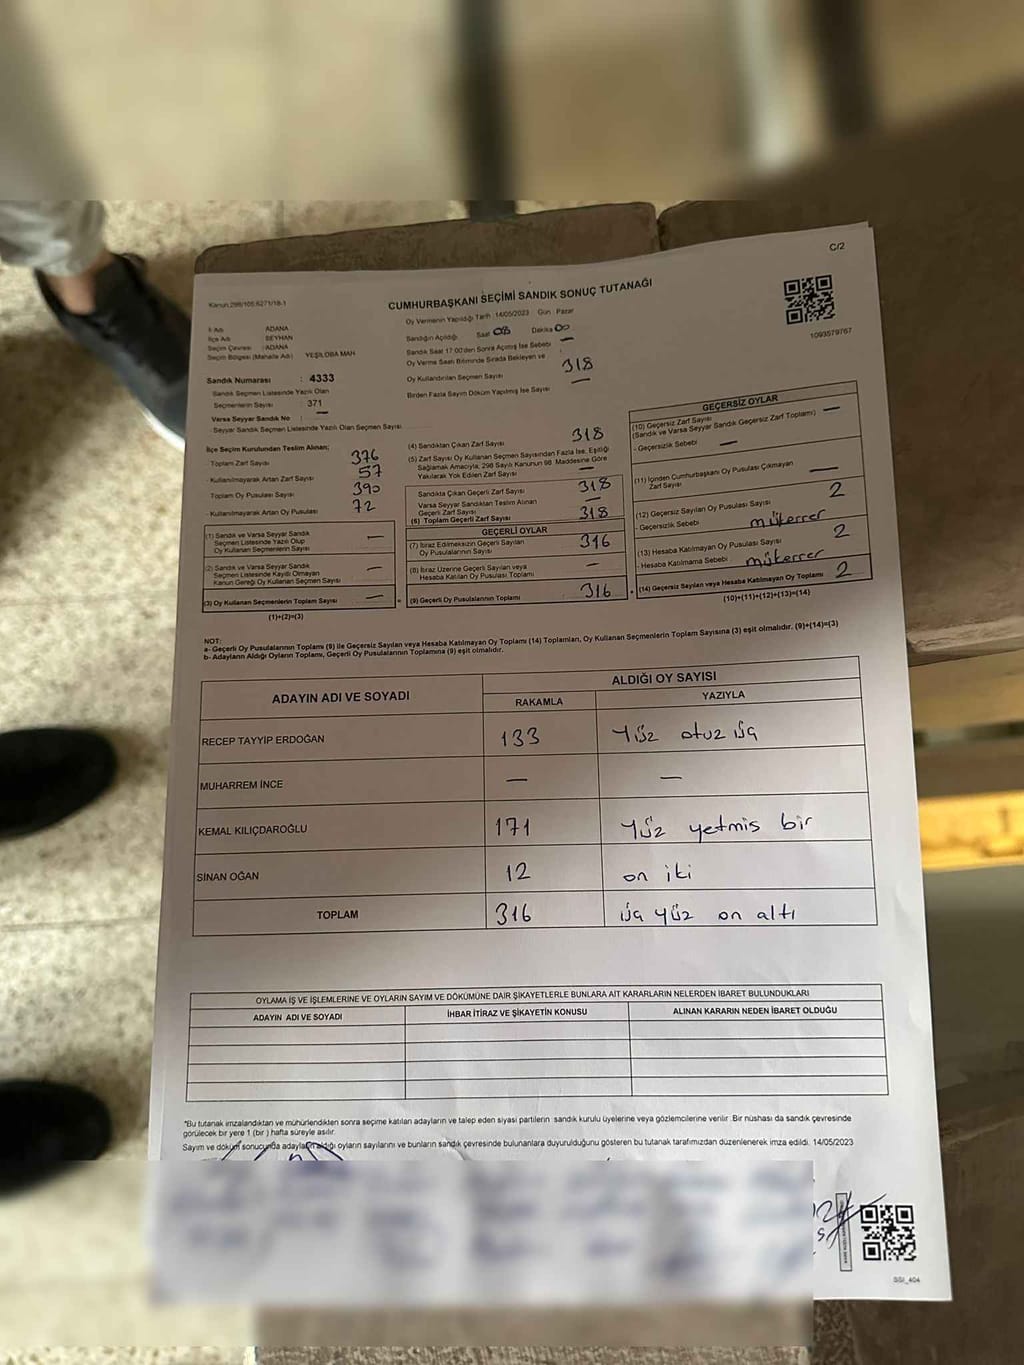 C/2
Kanun:298/105;6271/18-1
CUMHURBAŞKANI SEÇİMİ SANDIK SONUÇ TUTANAĞI
1093579767
İl Adı : ADANA
İlçe Adı : SEYHAN
Seçim Çevresi : ADANA
Seçim Bölgesi (Mahalle Adı) YEŞİLOBA MAH
Sandık Numarası : 4333
Sandık Seçmen Listesinde Yazılı Olan
Seçmenlerin Sayısı : 371
Varsa Seyyar Sandık No : —
Seyyar Sandık Seçmen Listesinde Yazılı Olan Seçmen Sayısı
Oy Vermenin Yapıldığı Tarih :14/05/2023 Gün : Pazar
Sandığın Açıldığı Saat 08 Dakika 00
Sandık Saat 17:00'den Sonra Açılmış İse Sebebi —
Oy Verme Saati Bitiminde Sırada Bekleyen ve
Oy Kullandırılan Seçmen Sayısı 318
Birden Fazla Sayım Döküm Yapılmış İse Sayısı —
İlçe Seçim Kurulundan Teslim Alınan;
- Toplam Zarf Sayısı 376
- Kullanılmayarak Artan Zarf Sayısı 57
Toplam Oy Pusulası Sayısı 390
- Kullanılmayarak Artan Oy Pusulası 72
(1) Sandık ve Varsa Seyyar Sandık
Seçmen Listesinde Yazılı Olup
Oy Kullanan Seçmenlerin Sayısı —
(2) Sandık ve Varsa Seyyar Sandık
Seçmen Listesinde Kaydı Olmayan
Kanun Gereği Oy Kullanan Seçmen Sayısı —
(3) Oy Kullanan Seçmenlerin Toplam Sayısı —
(1)+(2)=(3)
(4) Sandıktan Çıkan Zarf Sayısı 318
(5) Zarf Sayısı Oy Kullanan Seçmen Sayısından Fazla İse, Eşitliği
Sağlamak Amacıyla, 298 Sayılı Kanunun 98. Maddesine Göre
Yakılarak Yok Edilen Zarf Sayısı —
Sandıkta Çıkan Geçerli Zarf Sayısı 318
Varsa Seyyar Sandıktan Teslim Alınan
Geçerli Zarf Sayısı —
(6) Toplam Geçerli Zarf Sayısı 318
GEÇERLİ OYLAR
(7) İtiraz Edilmeksizin Geçerli Sayılan
Oy Pusulalarının Sayısı 316
(8) İtiraz Üzerine Geçerli Sayılan veya
Hesaba Katılan Oy Pusulası Toplamı —
= (9) Geçerli Oy Pusulalarının Toplamı 316
GEÇERSİZ OYLAR
(10) Geçersiz Zarf Sayısı
(Sandık ve Varsa Seyyar Sandık Geçersiz Zarf Toplamı) —
- Geçersizlik Sebebi —
(11) İçinden Cumhurbaşkanı Oy Pusulası Çıkmayan
Zarf Sayısı —
(12) Geçersiz Sayılan Oy Pusulası Sayısı 2
- Geçersizlik Sebebi mükerrer
(13) Hesaba Katılmayan Oy Pusulası Sayısı 2
- Hesaba Katılmama Sebebi mükerrer
+ (14) Geçersiz Sayılan veya Hesaba Katılmayan Oy Toplamı 2
(10)+(11)+(12)+(13)=(14)
NOT:
a- Geçerli Oy Pusulalarının Toplamı (9) ile Geçersiz Sayılan veya Hesaba Katılmayan Oy Toplamı (14) Toplamları, Oy Kullanan Seçmenlerin Toplam Sayısına (3) eşit olmalıdır. (9)+(14)=(3)
b- Adayların Aldığı Oyların Toplamı, Geçerli Oy Pusulalarının Toplamına (9) eşit olmalıdır.
ADAYIN ADI VE SOYADI
ALDIĞI OY SAYISI
RAKAMLA YAZIYLA
RECEP TAYYİP ERDOĞAN 133 Yüz otuz üç
MUHARREM İNCE — —
KEMAL KILIÇDAROĞLU 171 Yüz yetmis bir
SİNAN OĞAN 12 on iki
TOPLAM 316 üç yüz on altı
OYLAMA İŞ VE İŞLEMLERİNE VE OYLARIN SAYIM VE DÖKÜMÜNE DAİR ŞİKAYETLERLE BUNLARA AİT KARARLARIN NELERDEN İBARET BULUNDUKLARI
ADAYIN ADI VE SOYADI İHBAR İTİRAZ VE ŞİKAYETİN KONUSU ALINAN KARARIN NEDEN İBARET OLDUĞU
*Bu tutanak imzalandıktan ve mühürlendikten sonra seçime katılan adayların ve talep eden siyasi partilerin sandık kurulu üyelerine veya gözlemcilerine verilir. Bir nüshası da sandık çevresinde
görülecek bir yere 1 (bir) hafta süreyle asılır.
Sayım ve döküm sonucunda adayların aldığı oyların sayılarını ve bunların sandık çevresinde bulunanlara duyurulduğunu gösteren bu tutanak tarafımızdan düzenlenerek imza edildi. 14/05/2023
SSI_404